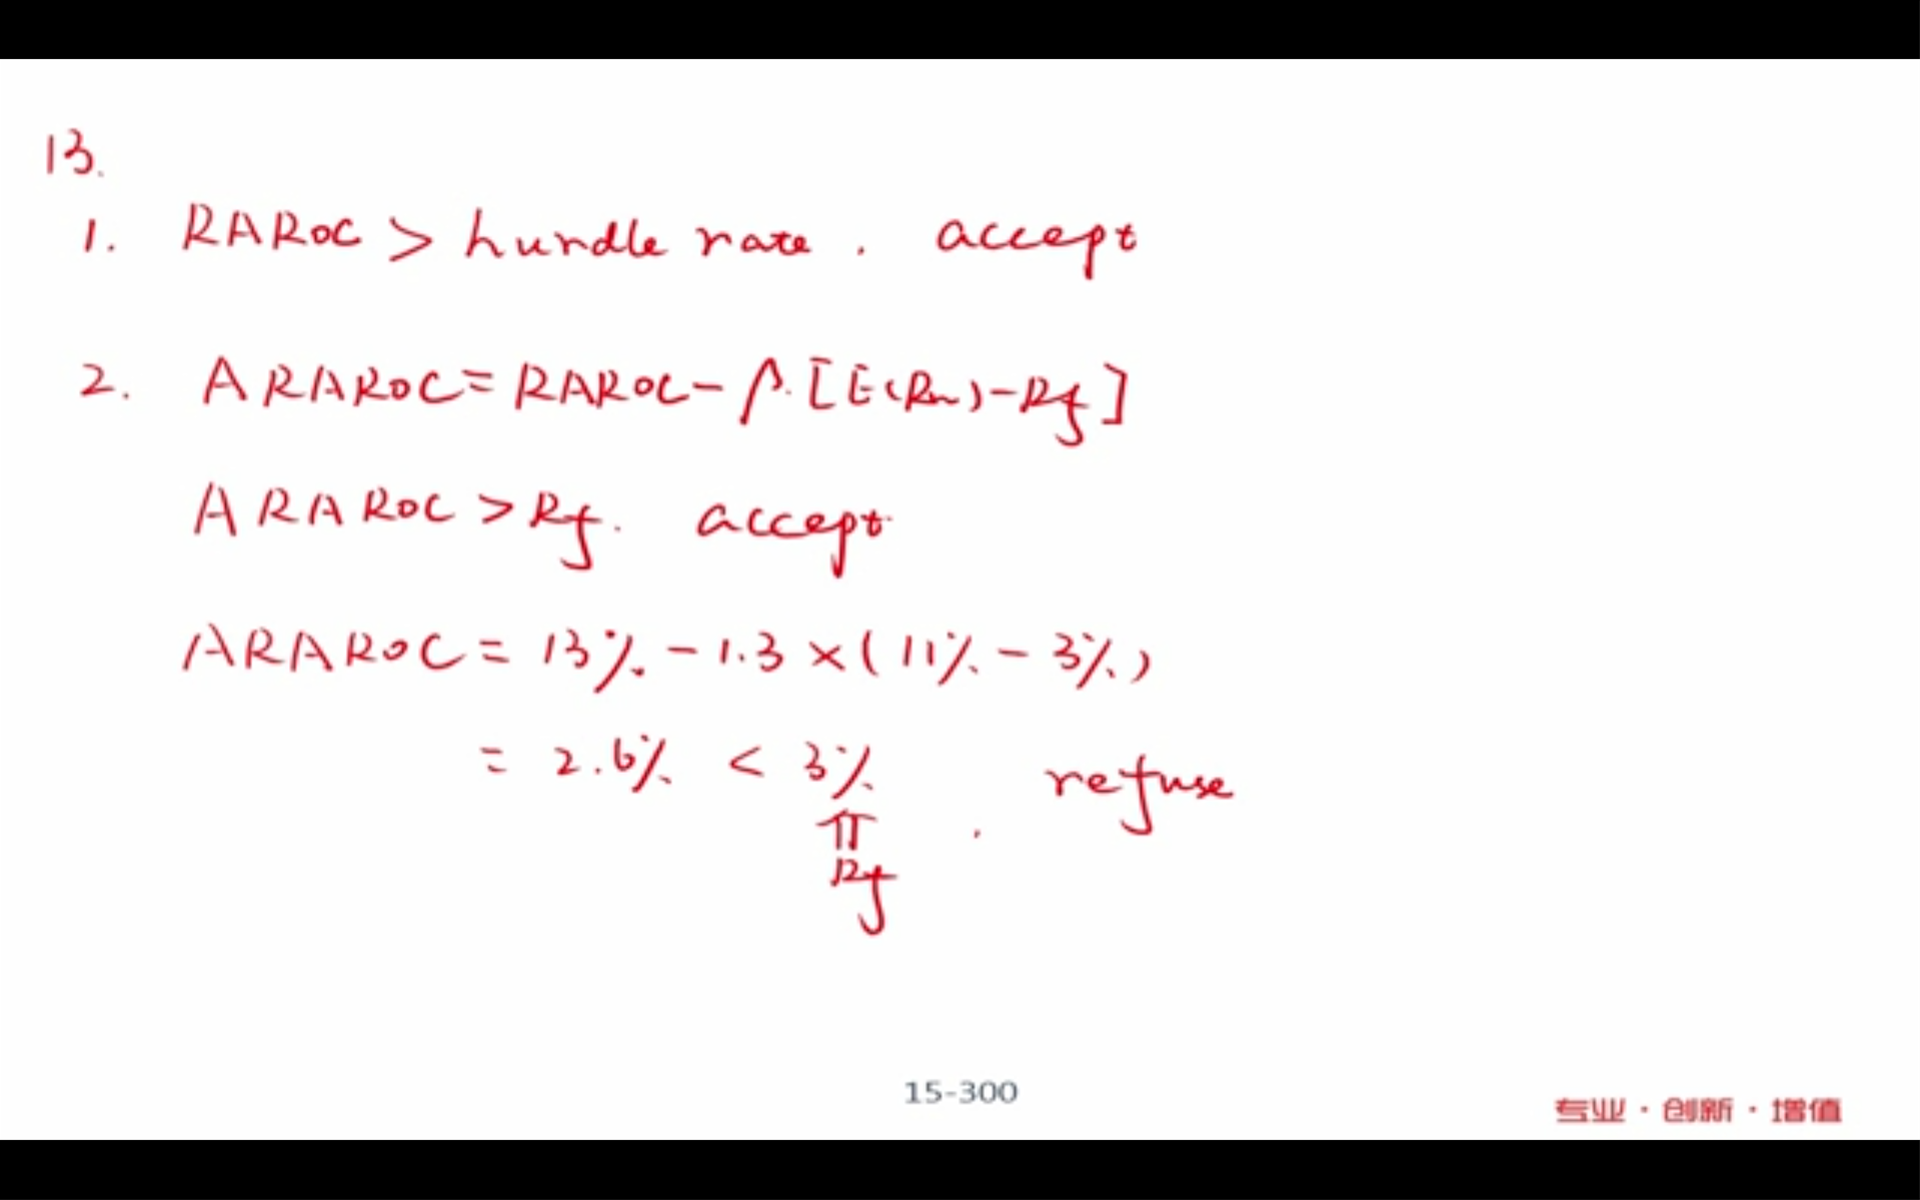 13.
1. RAROC > hundle rate. accept
2. ARAROC = RAROC - β·[E(Rm)-Rf]
ARAROC > Rf. accept
ARAROC = 13% - 1.3 × (11% - 3%)
= 2.6% < 3%. refuse
⇑
Rf
15-300
专业·创新·增值